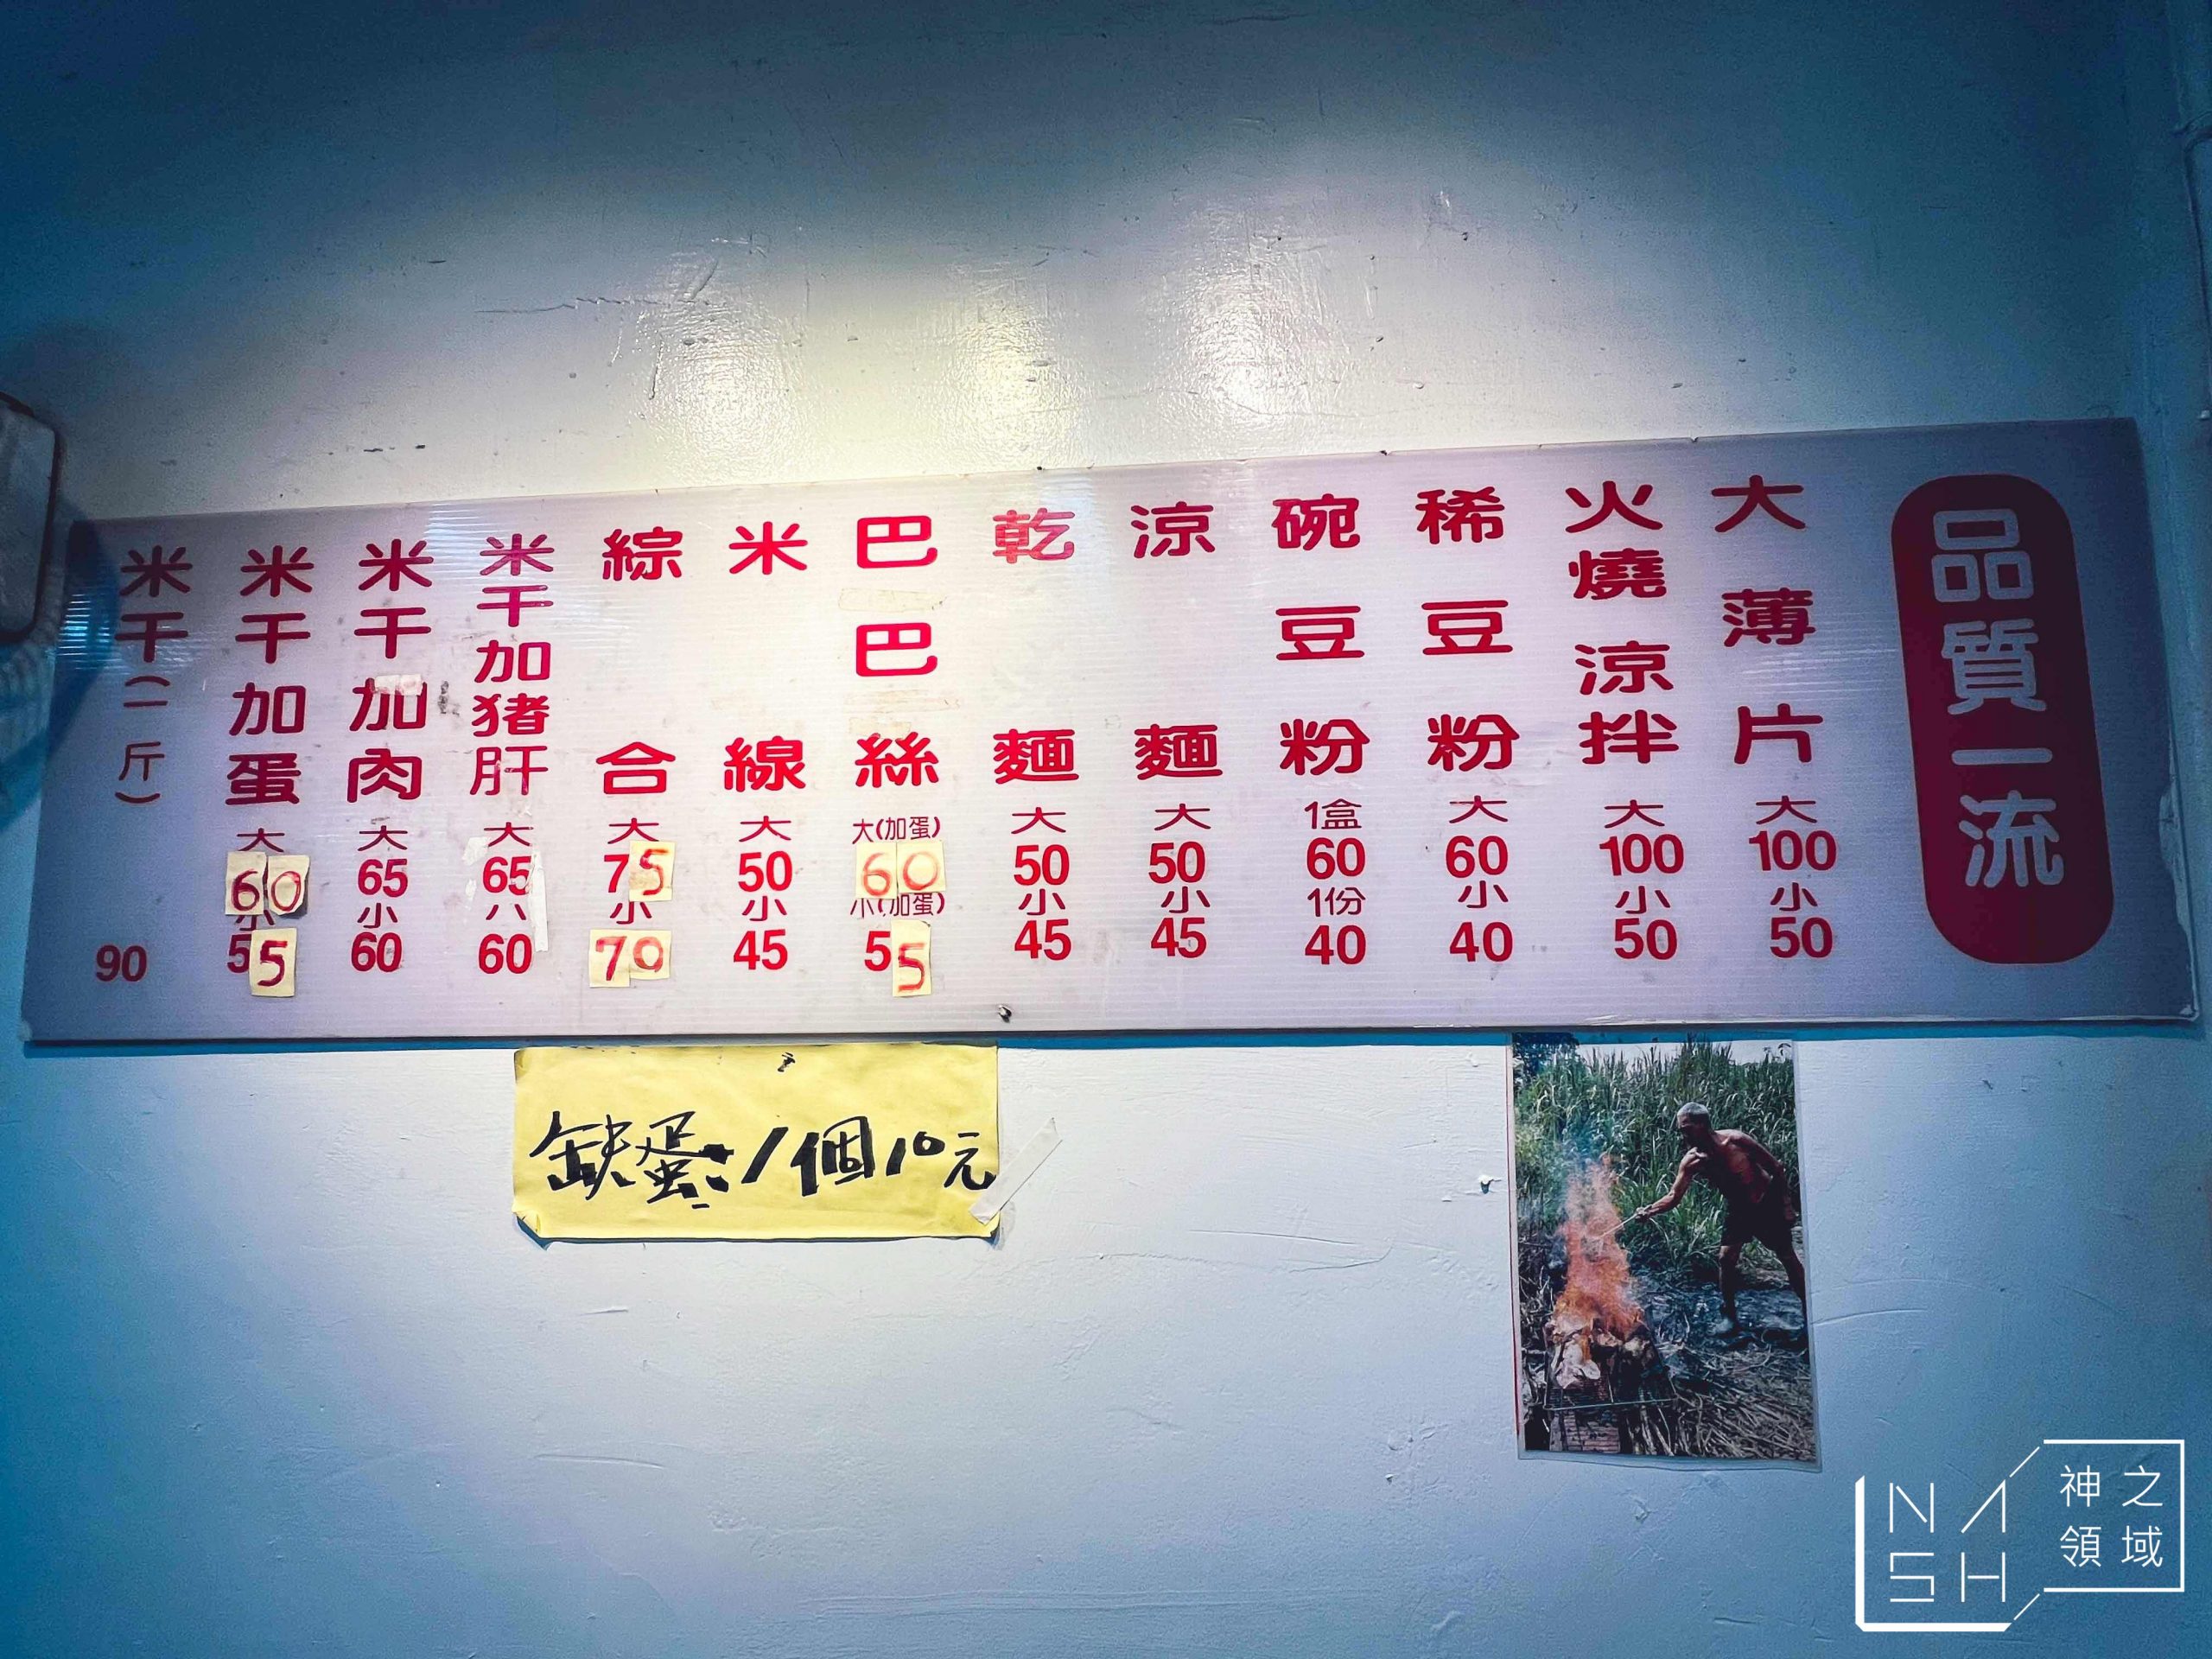 品質一流
大薄片 大 100 小 50
火燒涼拌 大 100 小 50
稀豆粉 大 60 小 40
碗豆粉 1盒 60 1份 40
涼麵 大 50 小 45
乾麵 大 50 小 45
巴巴絲 大(加蛋) 60 小(加蛋) 55
米線 大 50 小 45
綜合 大 75 小 70
米干加猪肝 大 65 小 60
米干加肉 大 65 小 60
米干加蛋 大 60 小 55
米干(一斤) 90
缺蛋:1個10元
NASH
神之
領域